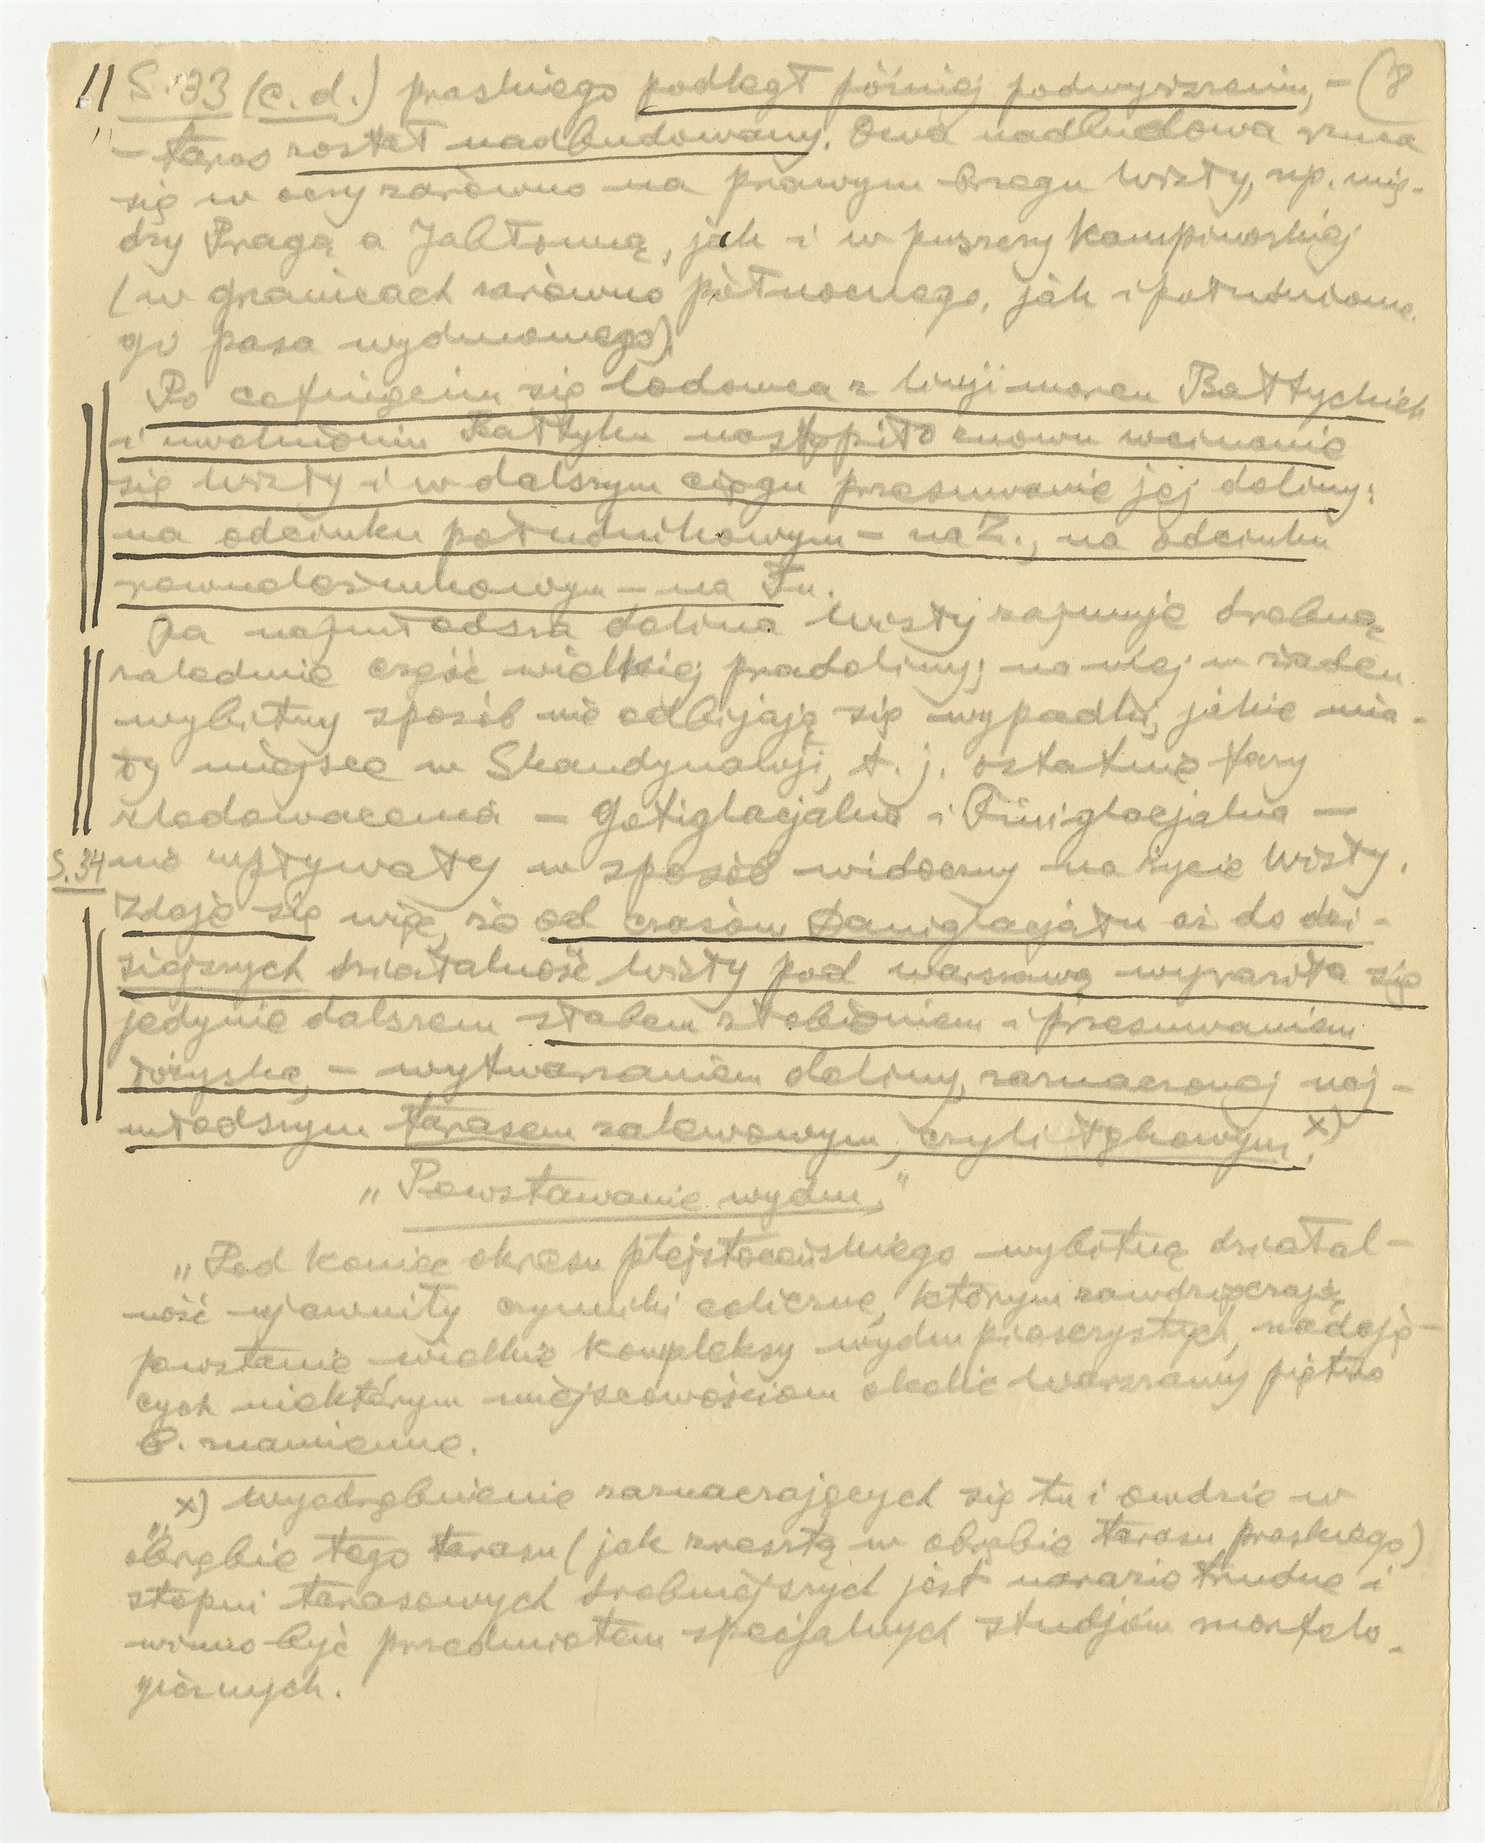 !! S. 33 (c.d.) praskiego podległ później podwyższeniu, – (8
„ – taras został nadbudowany. Owa nadbudowa rzuca
się w oczy zarówno na prawym brzegu Wisły, np. mię-
dzy Pragą a Jabłonną, jak i w puszczy Kampinoskiej
(w granicach zarówno północnego, jak i południowe-
go pasa wydmowego).
Po cofnięciu się lodowca z linji moren Bałtyckich
i uwolnieniu Bałtyku nastąpiło znowu wcinanie
się Wisły i w dalszym ciągu przesuwanie jej doliny:
na odcinku południkowym – na Z., na odcinku
równoleżnikowym – na Pn.
Ta najmłodsza dolina Wisły zajmuje drobną
zaledwie część wielkiej pradoliny; na niej w żaden
wybitny sposób nie odbijają się wypadki, jakie mia-
ły miejsce w Skandynawji, t. j. ostatnie fazy
zlodowacenia – Gotiglacjalna i Finiglacjalna –
S. 34 nie wpływały w sposób widoczny na życie Wisły.
Zdaje się więc, że od czasów Daniglacjału aż do dzi-
siejszych działalność Wisły pod Warszawą wyraziła się
jedynie dalszem słabem żłobieniem i przesuwaniem
łożyska, – wytwarzaniem doliny, zaznaczonej naj-
młodszym tarasem zalewowym, czyli łęgowym. x)
„Powstawanie wydm.”
„Pod koniec okresu plejstoceńskiego wybitną działal-
ność ujawniły czynniki eoliczne, którym zawdzięczają
powstanie wielkie kompleksy wydm piaszczystych, nadają-
cych niektórym miejscowościom okolic Warszawy piętno
b. znamienne.
„x) Wyodrębnienie zaznaczających się tu i owdzie w
obrębie tego tarasu (jak zresztą w obrębie tarasu praskiego)
stopni tarasowych drobniejszych jest narazie trudne i
winno być przedmiotem specjalnych studjów morfolo-
gicznych.